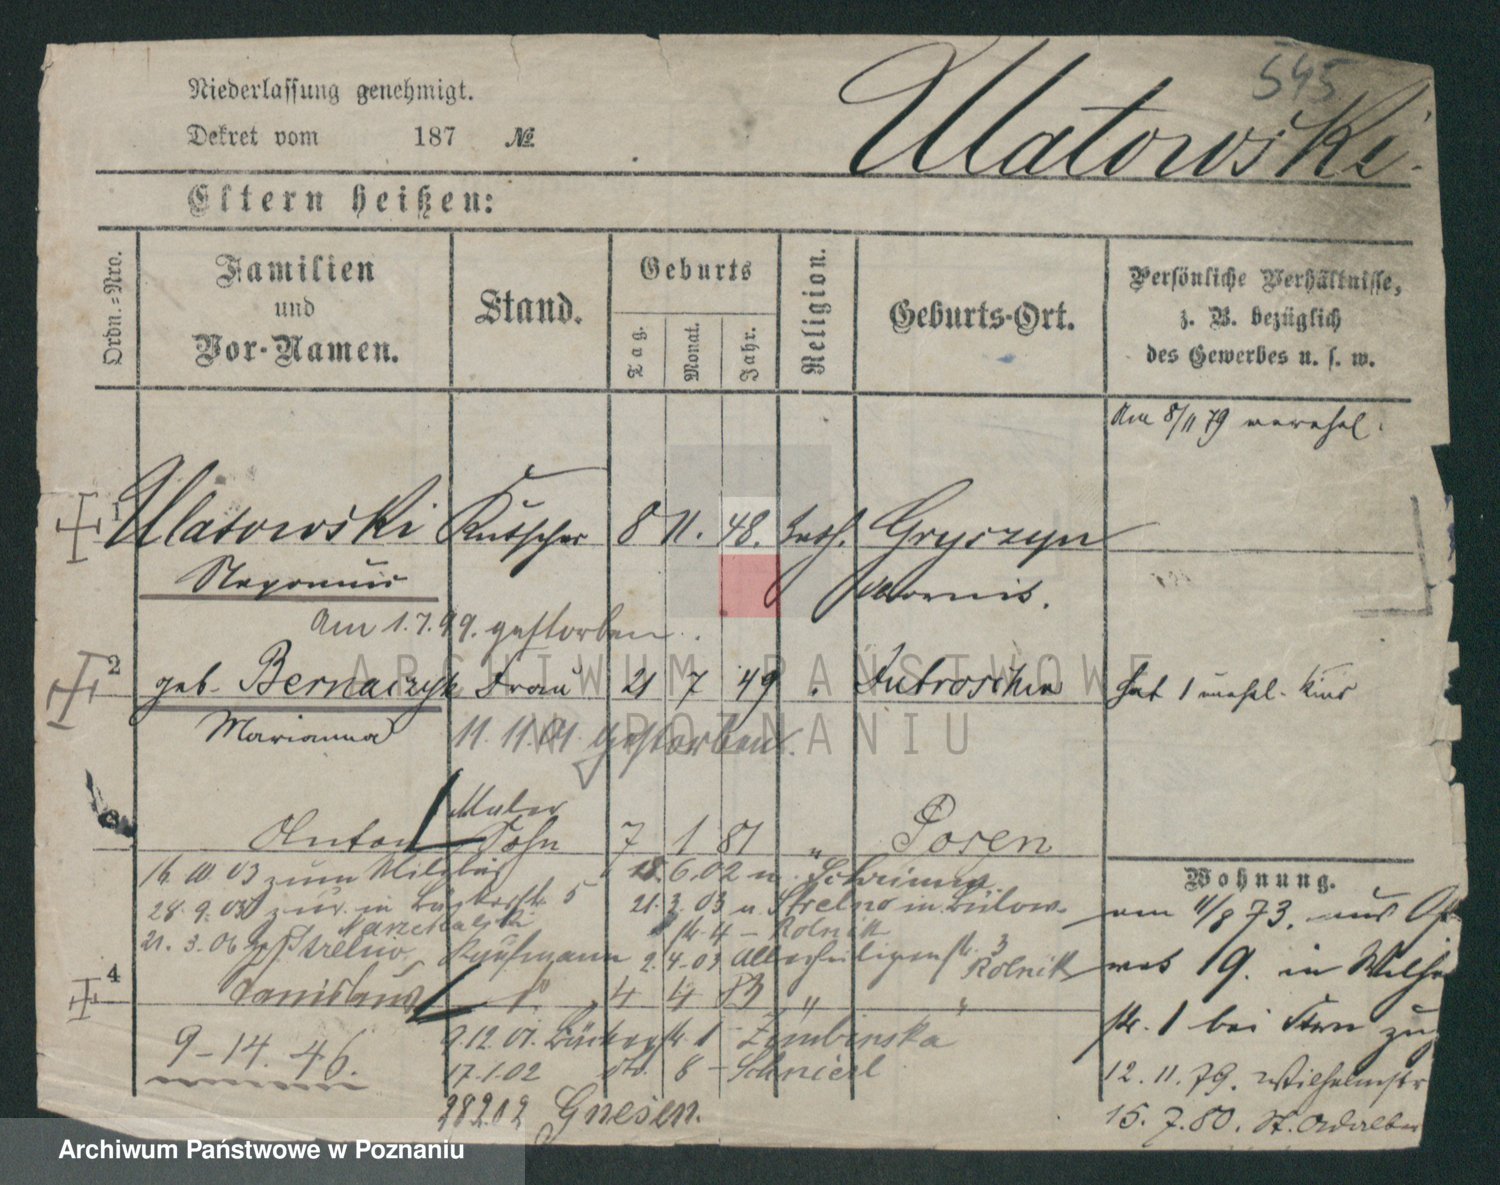 545
Niederlassung genehmigt.
Ulatowski.
Dekret vom 187 №
Eltern heißen:
Ordn.-Nro.
Familien und Vor-Namen.
Stand.
Geburts
Tag.
Monat.
Jahr.
Religion.
Geburts-Ort.
Persönliche Verhältnisse,
z. B. bezüglich
des Gewerbes u. s. w.
Am 8/11 79 verehel.
1 Ulatowski Kutscher 8 11. 48. kath. Gryszyn
Am 1.7.99. gestorben.
2 geb. Bernaczyk Frau 21 7 49 Dutroschin hat 1 unehel. Kind
Marianna 11.11.01. gestorben.
Maler
3 Anton Sohn 7 1 81 " Posen
16 10 03 zum Militär 18.6.02 n. Schrimm
Wohnung.
28.9.05 zur. in 5 21.3.03 n Strelno in Bülow-
am 11/8 73. aus
str. 4 - Rolnik
21.3.06 Strelno Kaufmann 2.4.03 Allerheiligenstr. 3
Rolnik
19. in
4 Stanislaus 4 4 83 " "
str. 1 bei zu
9-14.46. 9.12.01. Bäckerstr. 1 - Zimbinska
17.1.02 8 -
12.11.79. Wilhelmstr
28 2 02 Gnesen.
15.7.80. St. Adalber
ARCHIWUM PAŃSTWOWE
W POZNANIU
Archiwum Państwowe w Poznaniu